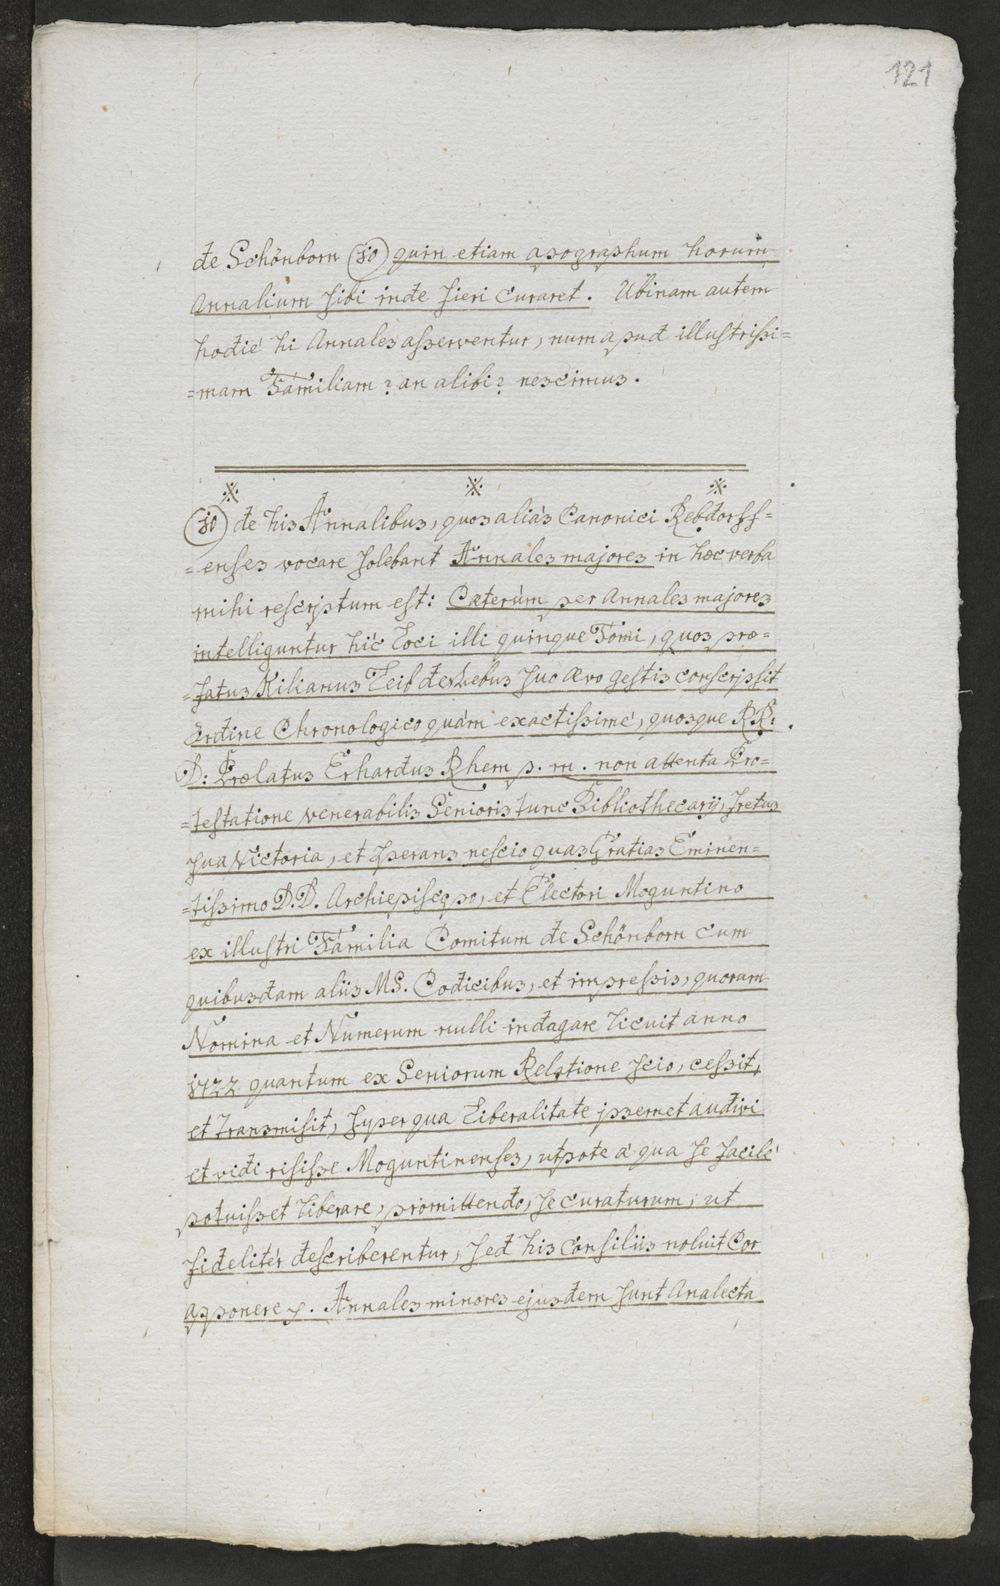 121
de Schönborn (50) quin etiam apographum horum
Annalium sibi inde fieri curaret. Ubinam autem
hodiè hi Annales asserventur, num apud illustrissi=
=mam Familiam? an alibi? nescimus.
(50) de his Annalibus, quos aliàs Canonici Rebdorff=
=enses vocare solebant Annales majores in hæc verba
mihi rescriptum est: Cæterùm per Annales majores
intelliguntur hìc Loci illi quinque Tomi, quos præ=
=fatus Kilianus Leib de rebus suo ævo gestis conscripsit
ordine Chronologico quàm exactissimè, quosque RR:
D: Prælatus Erhardus Rhem p. m. non attenta Pro=
=testatione venerabilis Senioris tunc Bibliothecarij, fretus
sua Victoria, et sperans nescio quas Gratias Eminen=
=tissimo D.D. Archiepiscopo, et Electori Moguntino
ex illustri Familia Comitum de Schönborn cum
quibusdam aliis MS. Codicibus, et impressis, quorum
Nomina et Numerum nulli indagare licuit anno
1722 quantum ex Seniorum Relatione scio, cessit,
et transmisit, super qua Liberalitate ipsemet audivi
et vidi risisse Moguntinenses, utpote à qua se facilè
potuisset liberare, promittendo, se curaturum, ut
fidelitèr describerentur, sed his Consiliis noluit Cor
apponere &. Annales minores ejusdem sunt Analecta